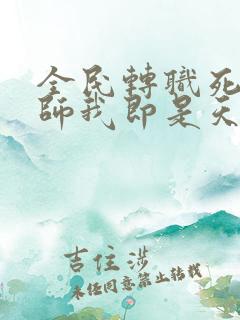 全民轉職死
師我即是天
吉住涉
未经同意禁止转载